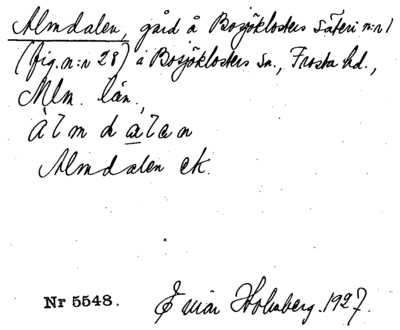 Almdalen, gård å Bosjöklosters Säteri n:r 1
(fig. n:r 28) i Bosjöklosters sn., Frosta hd.,
Mlm. län,
Àlmdàlæn
Almdalen ek.
Nr 5548. Einar Holmberg. 1927.